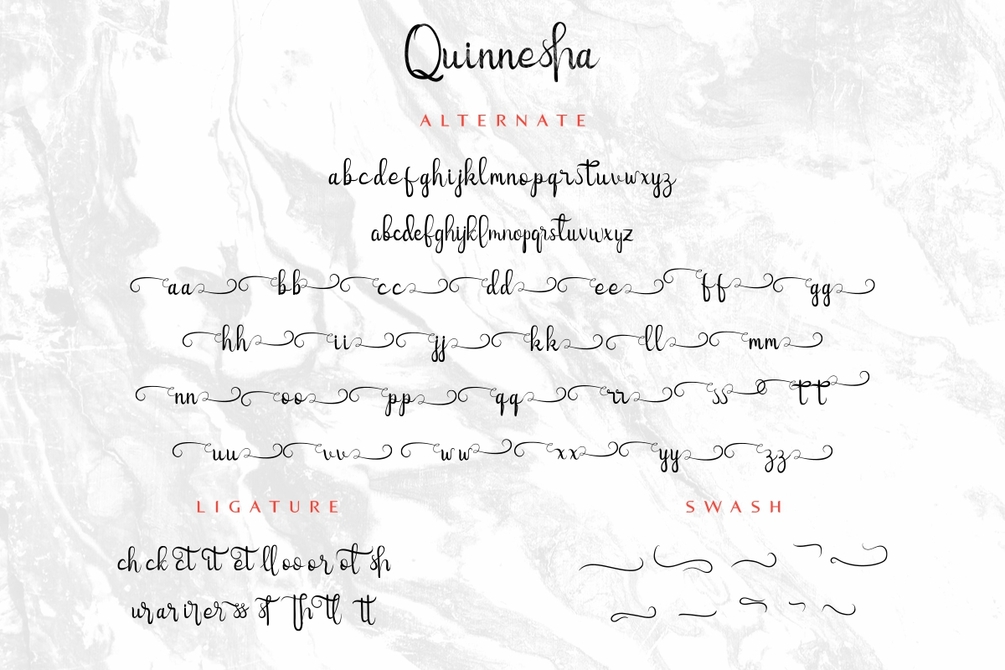 Quinnesha
ALTERNATE
abcdefghijklmnopqrstuvwxyz
abcdefghijklmnopqrstuvwxyz
aa bb cc dd ee ff gg
hh ii jj kk ll mm
nn oo pp qq rr ss tt
uu vv ww xx yy zz
LIGATURE
SWASH
ch ck et it et ll oo or ot sh
ur ar ir er ss st Th tl tt